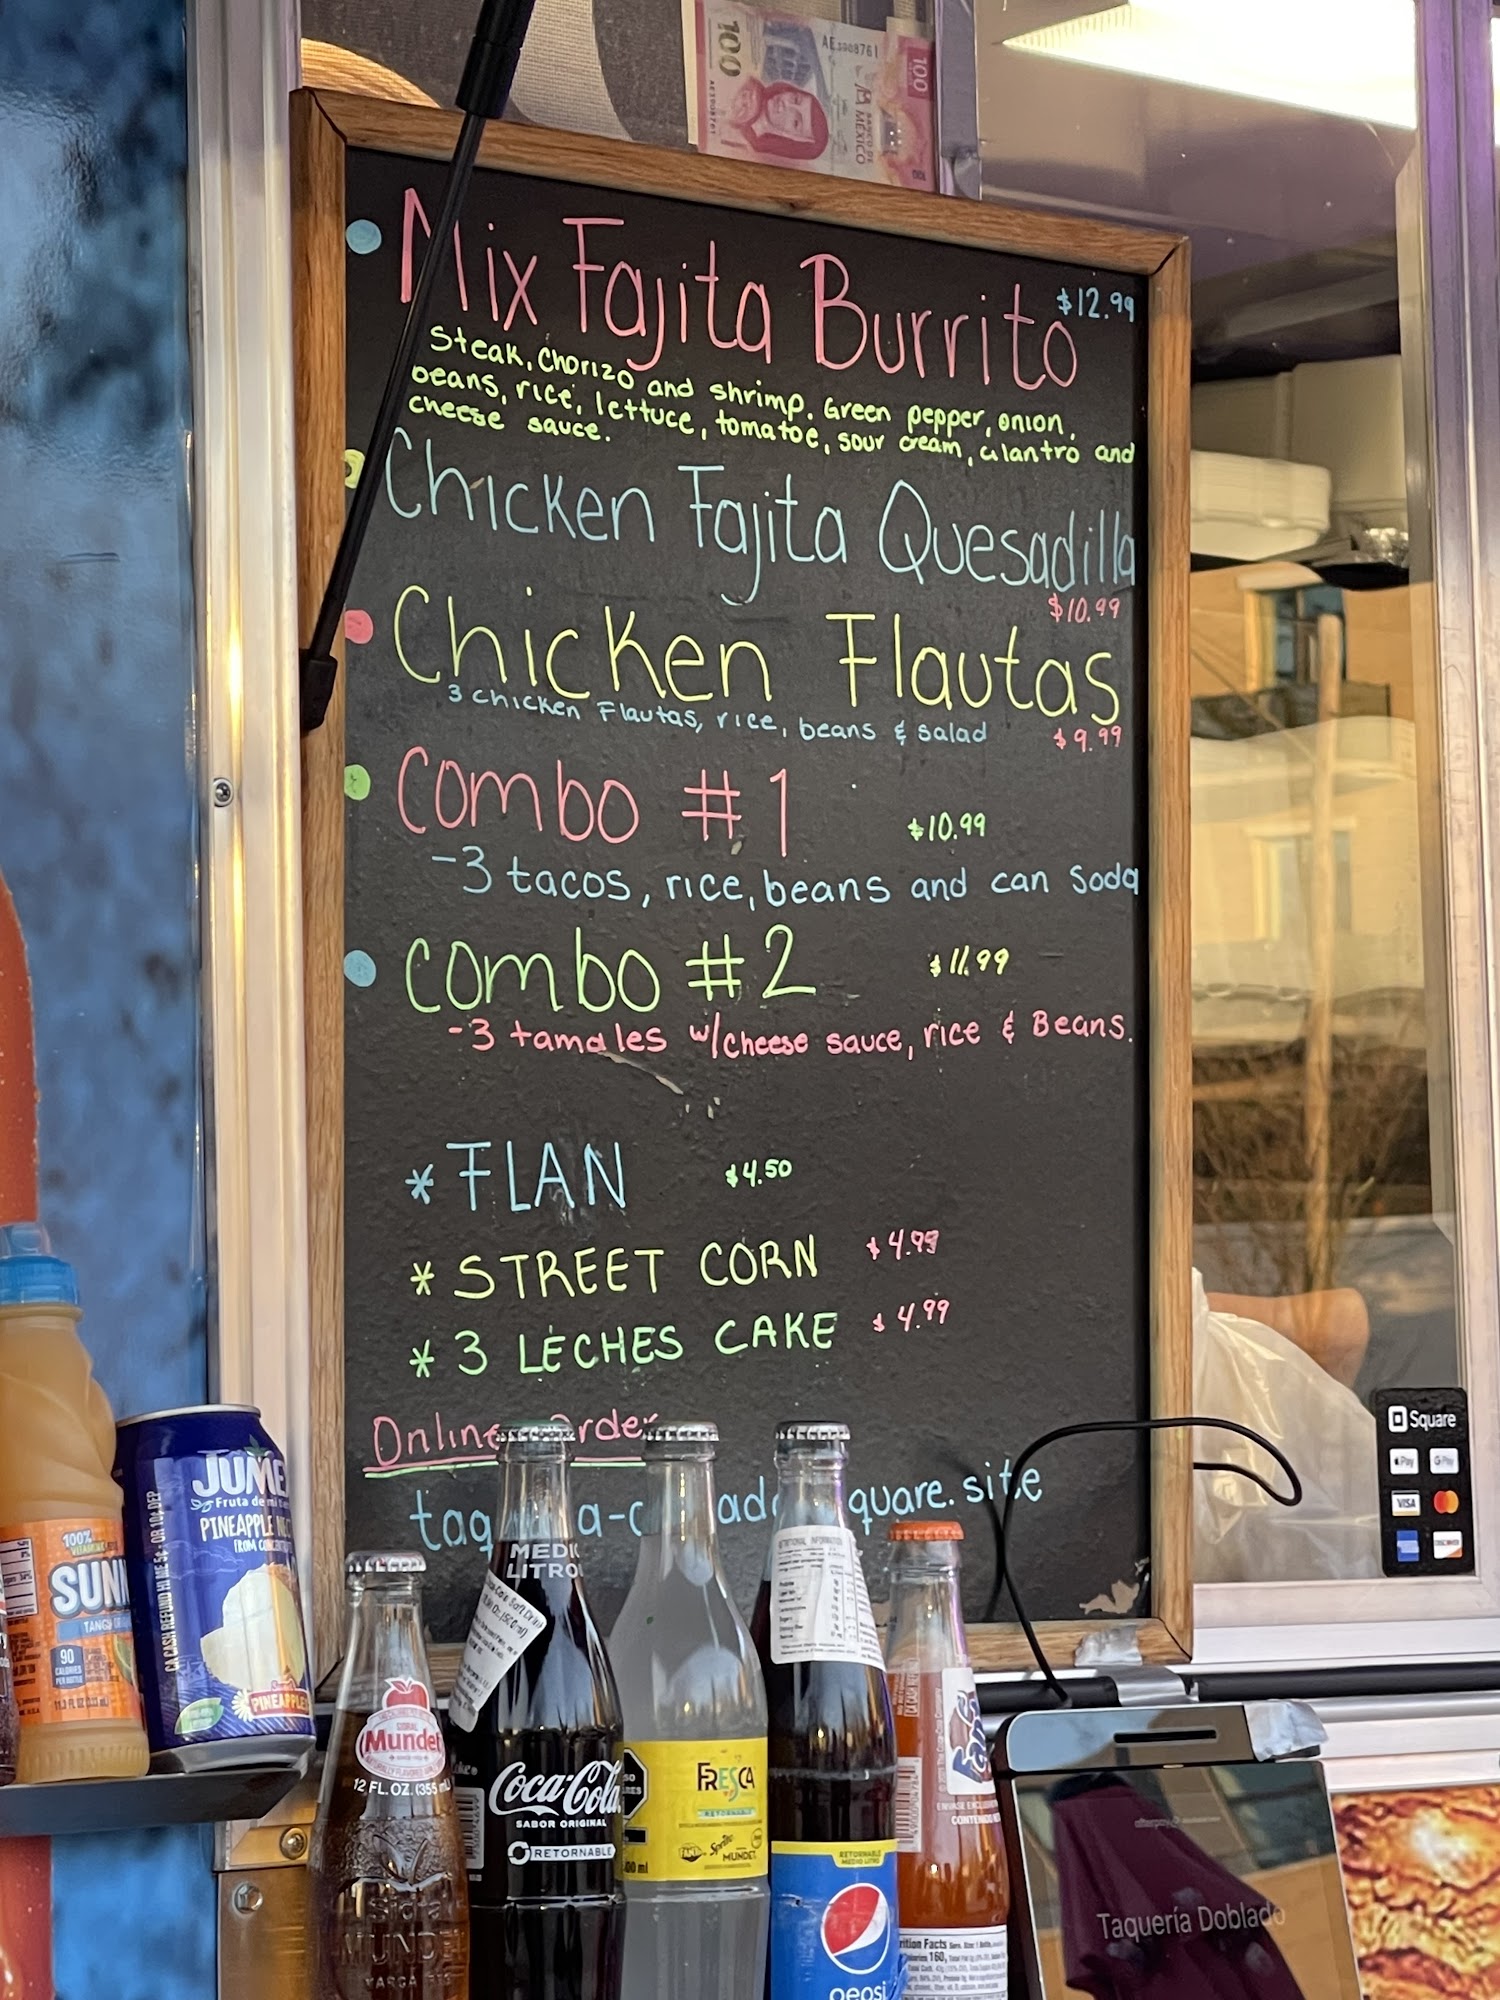 100
AE3908761
100
BANCO DE
MÉXICO
Mix Fajita Burrito
$12.99
Steak, Chorizo and shrimp. Green pepper, onion,
beans, rice, lettuce, tomatoe, sour cream, cilantro and
cheese sauce.
Chicken Fajita Quesadilla
$10.99
Chicken Flautas
3 chicken Flautas, rice, beans & salad
$9.99
Combo #1 $10.99
-3 tacos, rice, beans and can Soda
Combo #2 $11.99
-3 tamales w/cheese sauce, rice & Beans.
* FLAN $4.50
* STREET CORN $4.99
* 3 LECHES CAKE $4.99
Online
quare.site
Square
Pay
G Pay
VISA
DISCOVER
JUME
Fruta de
PINEAPPLE
FROM
CA CASH REFUND
PINEAPPLE
100%
SUNN
90
CALORIES
MEDIO
LITRO
Mundet
12 FL. OZ. (355 mL
MUNDE
Coca-Cola
SABOR ORIGINAL
RETORNABLE
FRESCA
RETORNABLE
Sprite
MUNDET
500 ml
NUTRITIONAL INFORMATION
RETORNABLE
MEDIO LITRO
pepsi
CONTENIDO
rition Facts
160
Taquería Doblado